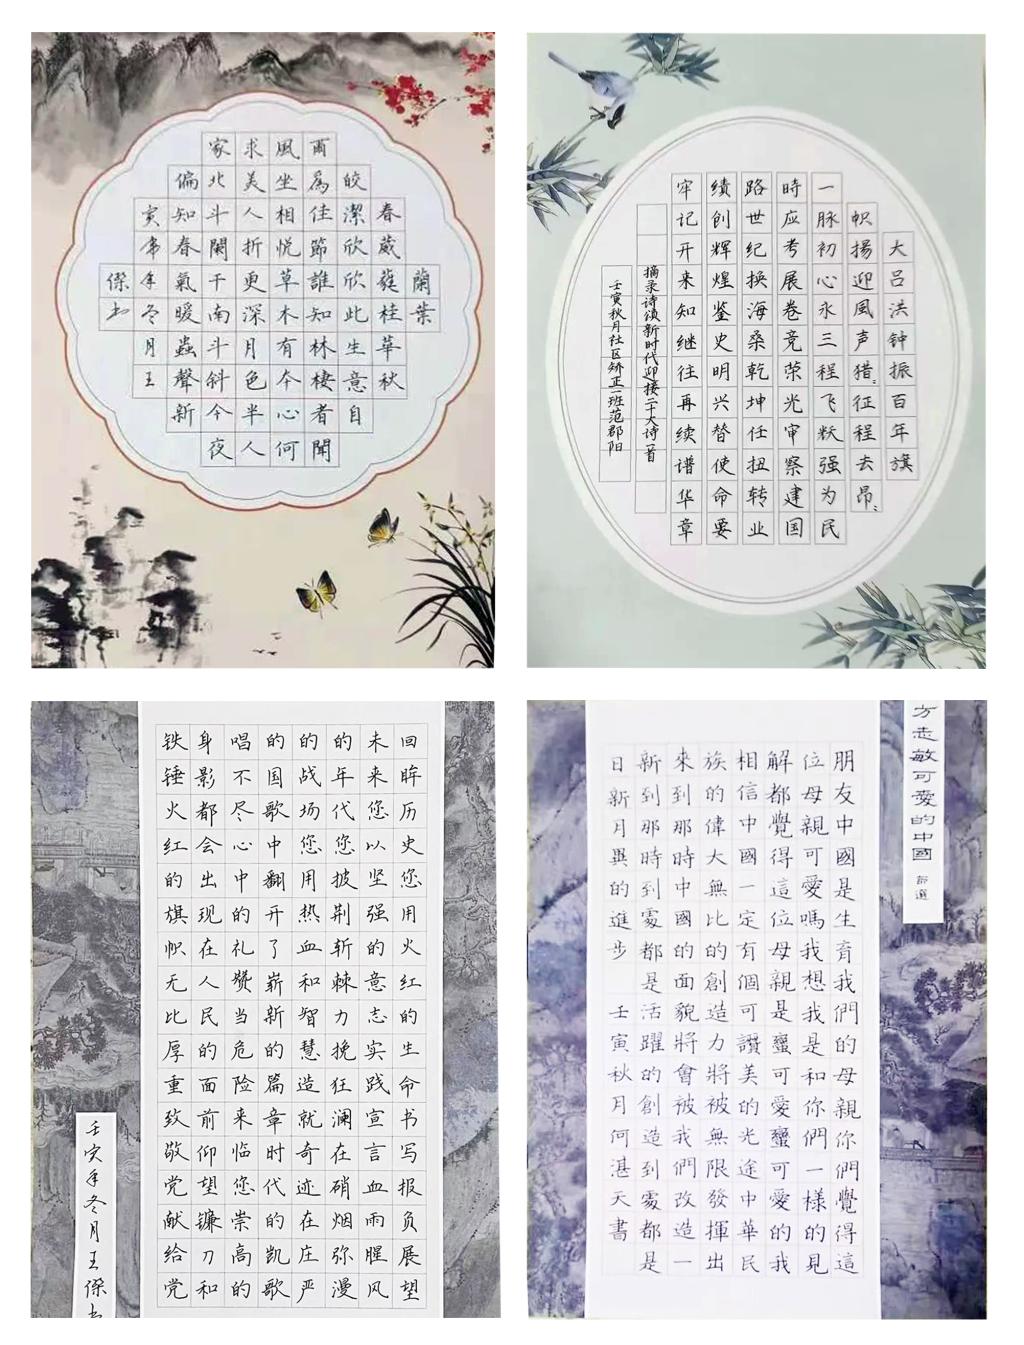 蘭葉
春葳蕤桂華秋
皎潔欣欣此生意自
爾為佳節誰知林棲者聞
風坐相悅草木有本心何
求美人折更深月色半人
家北斗闌干南斗斜今夜
偏知春氣暖蟲聲新
寅年冬月王
傑书
大吕洪钟振百年旗
帜揚迎風声猎〻征程去昂〻
一脉初心永三程飞跃强为民
時应考展卷竞荣光审察建国
路世纪换海桑乾坤任扭转业
绩創辉煌鉴史明兴替使命要
牢记开来知继往再续谱华章
摘录诗颂新时代迎接二十大诗一首
壬寅秋月社区矫正一班范郡阳
回眸历史您用火红的生命书写报负展望
未来您以坚强的意志实践宣言血雨腥风
的年代您披荆斩棘力挽狂澜在硝烟弥漫
的战场您用热血和智慧造就奇迹在庄严
的国歌中翻开了崭新的篇章时代的凯歌
唱不尽心中的礼赞当危险来临您崇高的
身影都会出现在人民的面前仰望镰刀和
铁锤火红的旗帜无比厚重致敬党献给党
壬寅年冬月王傑书
方志敏可愛的中國 節選
朋友中國是生育我們的母親你們覺得這
位母親可愛嗎我想我是和你們一樣的見
解都覺得這位母親是蠻可愛蠻可愛的我
相信中國一定有個可讚美的光途中華民
族的偉大無比的創造力將被無限發揮出
來到那時中國的面貌將會被我們改造一
新到那時到處都是活躍的創造到處都是
日新月異的進步 壬寅秋月何湛天書